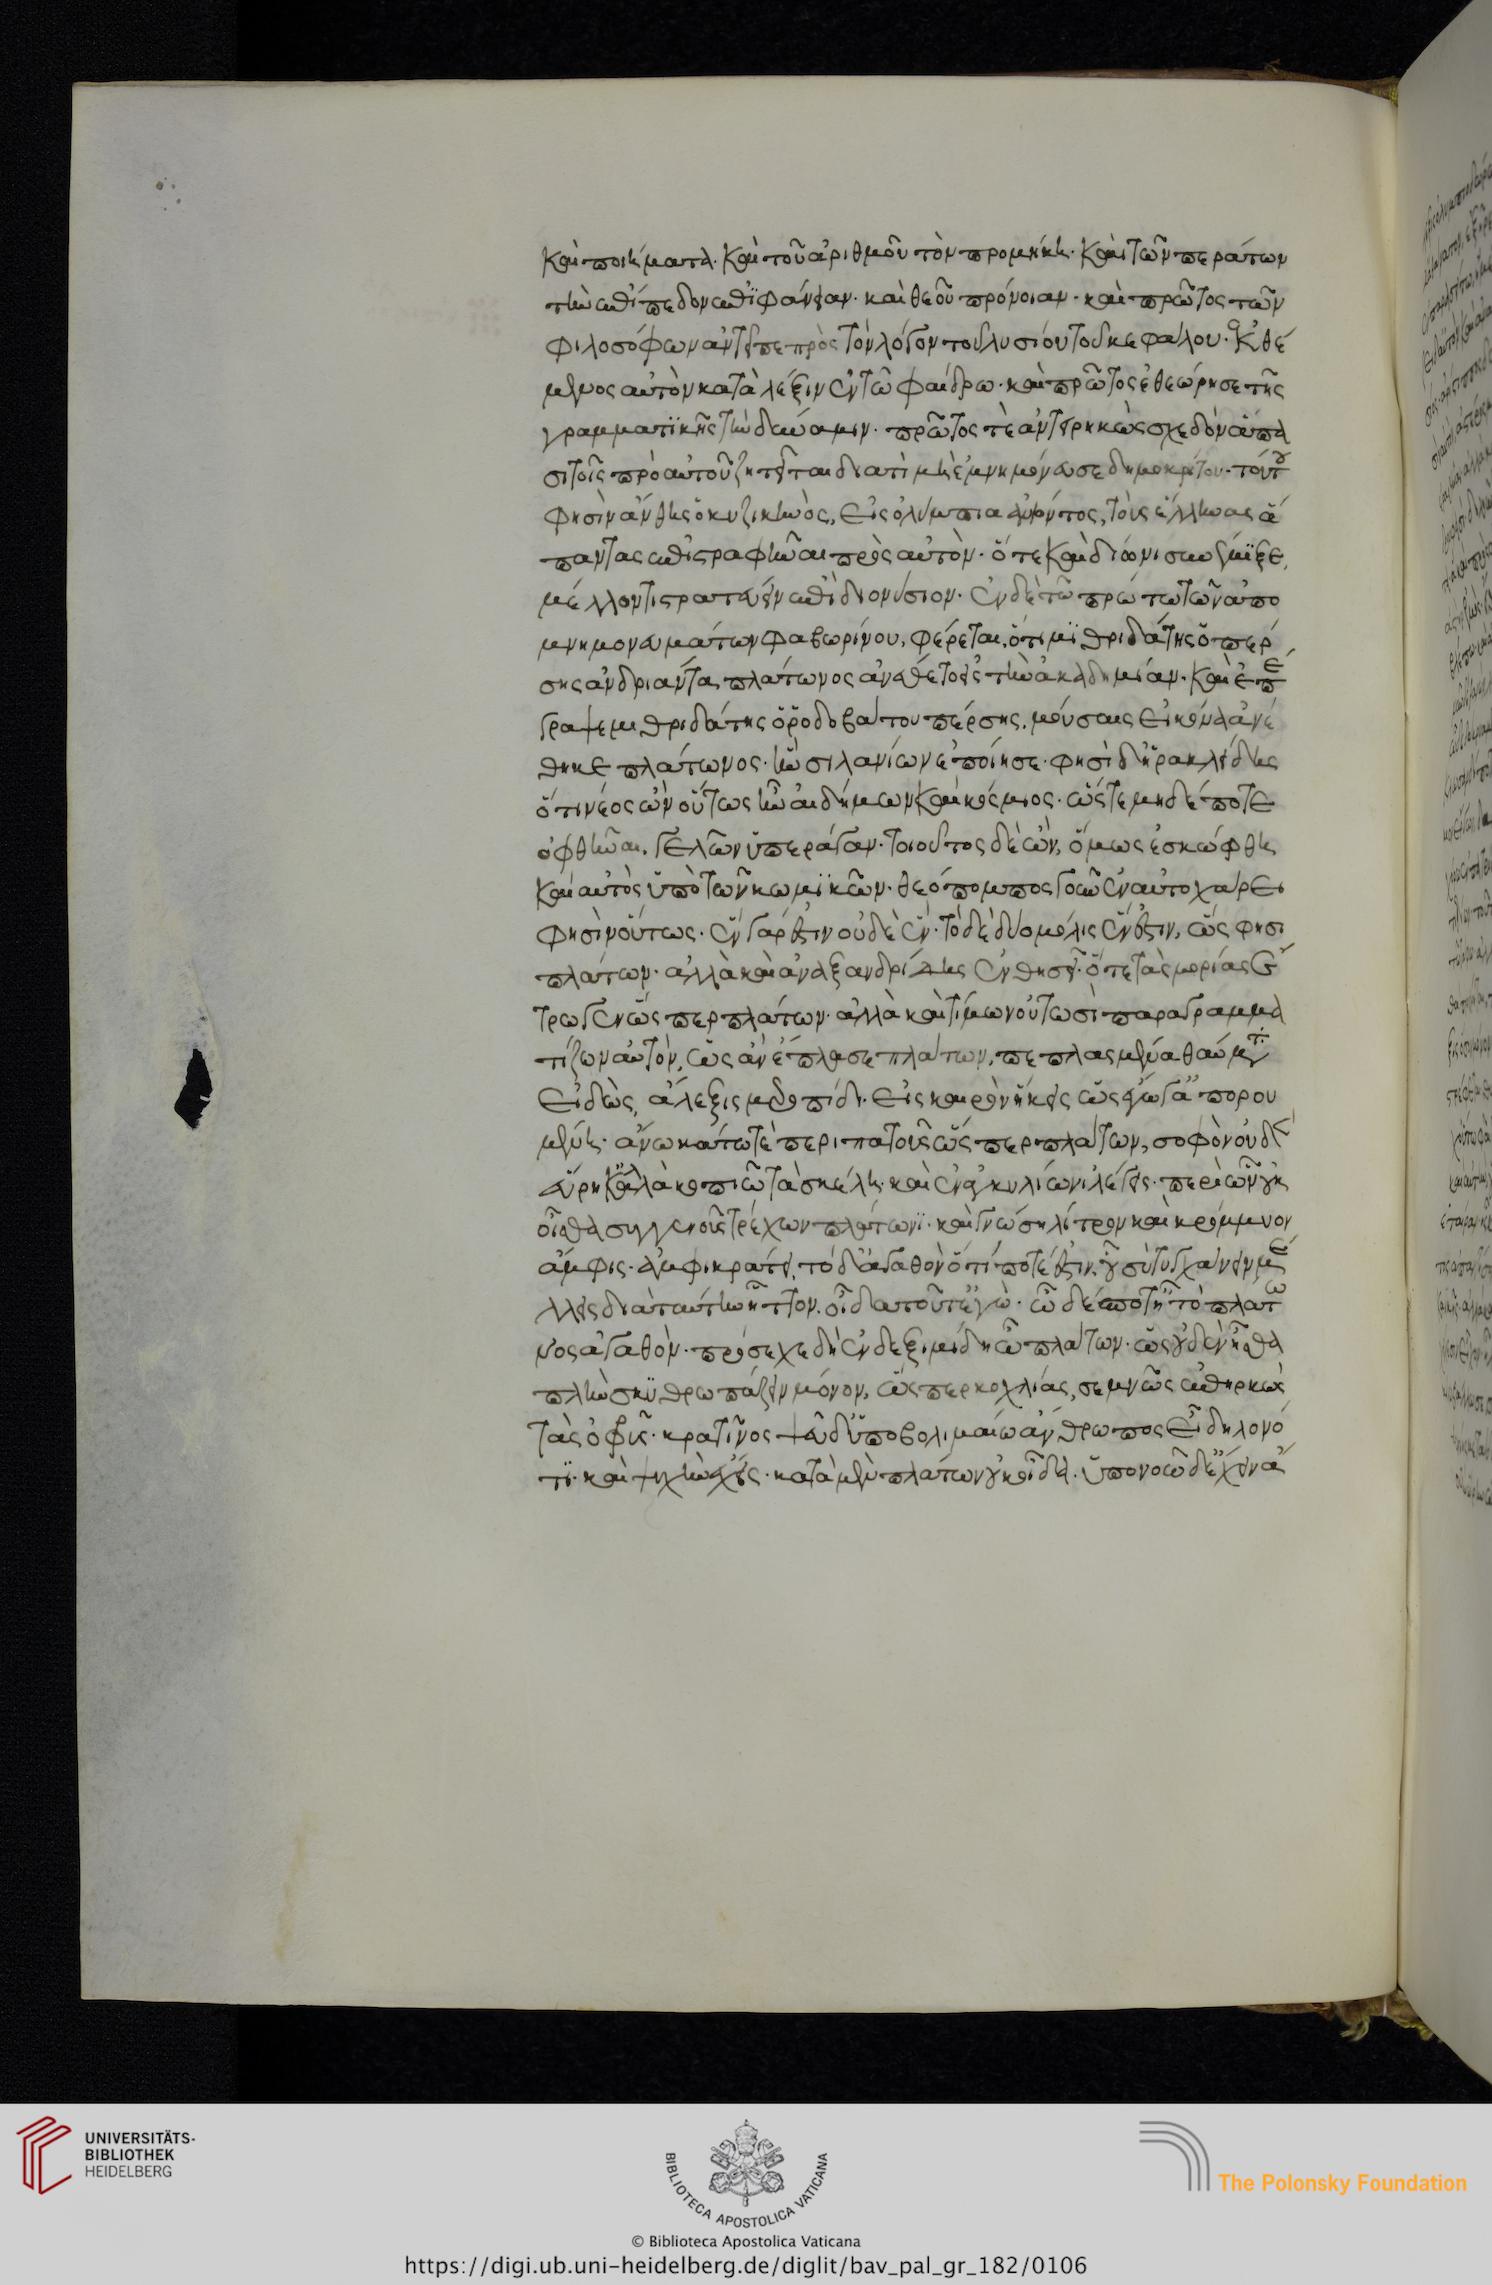 καὶ ποιήματα. καὶ τοῦ ἀριθμοῦ τὸν προμήκη. καὶ τῶν περάτων
τὴν ἐπίπεδον ἐπιφάνειαν. καὶ θεοῦ πρόνοιαν. καὶ πρῶτος τῶν
φιλοσόφων ἀντεῖπε πρὸς τὸν λόγον τοῦ λυσίου τοῦ κεφάλου. ἐκθέ
μενος αὐτὸν κατὰ λέξιν ἐν τῶ φαίδρω. καὶ πρῶτος ἐθεώρησε τῆς
γραμματικῆς τὴν δύναμιν. πρῶτος τὲ ἀντειρηκὼς σχεδὸν ἅπα
σι τοῖς πρὸ αὐτοῦ ζητεῖται διατὶ μὴ ἐμνημόνευσε δημοκρίτου. τούτου
φησὶν ἀνθης ὁ κυζικηνὸς, εἰς ὀλύμπια ἀνιόντος, τοὺς ἕλληνας ἅ
παντας ἐπιστραφῆναι πρὸς αὐτὸν. ὅτε καὶ δίωνι συνέμιξε
μέλλοντι στρατεύειν ἐπὶ διονύσιον. ἐν δὲ τῶ πρώτω τῶν ἀπο
μνημονευμάτων φαβωρίνου, φέρεται, ὅτι μιθριδάτης ὁ πέρ
σης ἀνδριάντα πλάτωνος ἀνέθετο εἰς τὴν ἀκαδημίαν. καὶ ἐπέ
γραψε μιθριδάτης ὁ ῥοδοβάτου πέρσης, μούσαις εἰκόνα ἀνέ
θηκε πλάτωνος. ἣν σιλανίων ἐποίησε. φησὶ δ' ἡρακλείδης
ὅτι νέος ὢν οὕτως ἦν αἰδήμων καὶ κόσμιος. ὥστε μηδέποτε
ὀφθῆναι, γελῶν ὑπεράγαν. τοιοῦτος δὲ ὢν, ὅμως ἐσκώφθη
καὶ αὐτὸς ὑπὸ τῶν κωμικῶν. θεόπομπος γοῦν ἐν αὐτοχάρει
φησὶν οὕτως. ἓν γάρ ἐστιν οὐδὲ ἕν. τὸ δὲ δύο μόλις ἕν ἐστιν, ὥς φησι
πλάτων. ἀλλὰ καὶ ἀναξανδρίδης ἐν θησεῖ. ὅτε τὰς μορίας ἔ
τρωγεν ὥσπερ πλάτων. ἀλλὰ καὶ τίμων οὑτωσὶ παραγραμμα
τίζων αὐτὸν, ὡς ἀνέπλασε πλάτων, πεπλασμένα θαύματα
εἰδὼς, ἄλεξις μεροπίδι. εἰς καιρὸν ἥκεις ὡς ἔγωγ' ἀπορου
μένη. ἄνω κάτω τὲ περιπατοῦσ' ὥσπερ πλάτων, σοφὸν οὐδὲν
εὕρηκ' ἀλλὰ κοπιῶ τὰ σκέλη. καὶ ἐν ἀγκυλίωνι λέγεις. περὶ ὧν οὐκ
οἶσθα συγγενοῦ τρέχων πλάτωνι. καὶ γνώση λίτρον καὶ κρόμμυον
ἄμφις. ἀμφικράτει, τὸ δ' ἀγαθὸν ὅτι ποτέ ἐστιν, οὗ σὺ τυγχάνειν μέ
λλεις διὰ ταύτην ἧττον. οἶδα τοῦτ' ἐγὼ. ὦ δέσποτ' ἢ τὸ πλάτω
νος ἀγαθὸν. πρόσεχε δὴ ἐν δεξιμίδη ὦ πλάτων. ὡς οὐδὲν ἦσθα
πλὴν σκυθρωπάζειν μόνον, ὥσπερ κοχλίας, σεμνῶς ἐπηρκὼς
τὰς ὀφρῦς. κρατῖνος ψευδυποβολιμαίω ἄνθρωπος εἶ δηλονό
τι. καὶ ψυχὴν ἔχεις. κατὰ μὲν πλάτων οὐκ οἶδα. ὑπονοῶ δ' ἔχειν ἀ
UNIVERSITÄTS-
BIBLIOTHEK
HEIDELBERG
BIBLIOTECA APOSTOLICA VATICANA
The Polonsky Foundation
© Biblioteca Apostolica Vaticana
https://digi.ub.uni-heidelberg.de/diglit/bav_pal_gr_182/0106